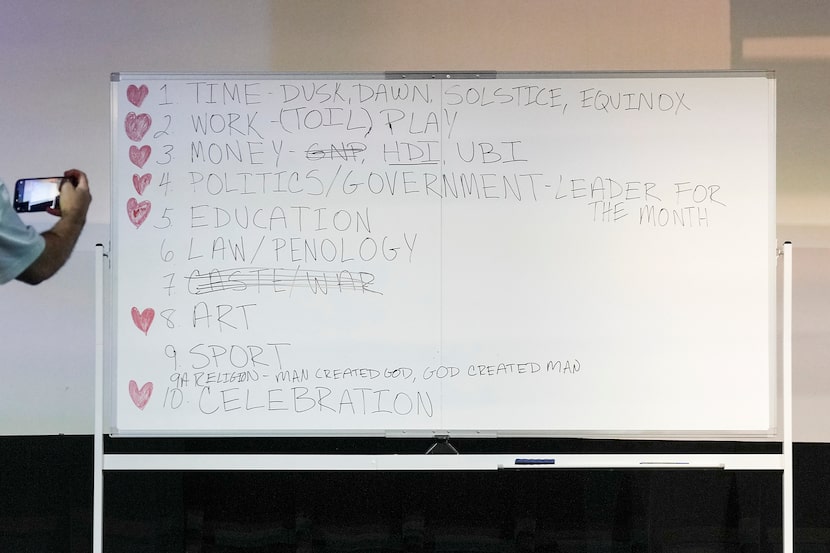 1. TIME - DUSK, DAWN, SOLSTICE, EQUINOX
2. WORK - (TOIL) PLAY
3. MONEY - GNP, HDI, UBI
4. POLITICS/GOVERNMENT - LEADER FOR
THE MONTH
5. EDUCATION
6 LAW/PENOLOGY
7 CASTE/WAR
8. ART
9. SPORT
9A RELIGION - MAN CREATED GOD, GOD CREATED MAN
10. CELEBRATION